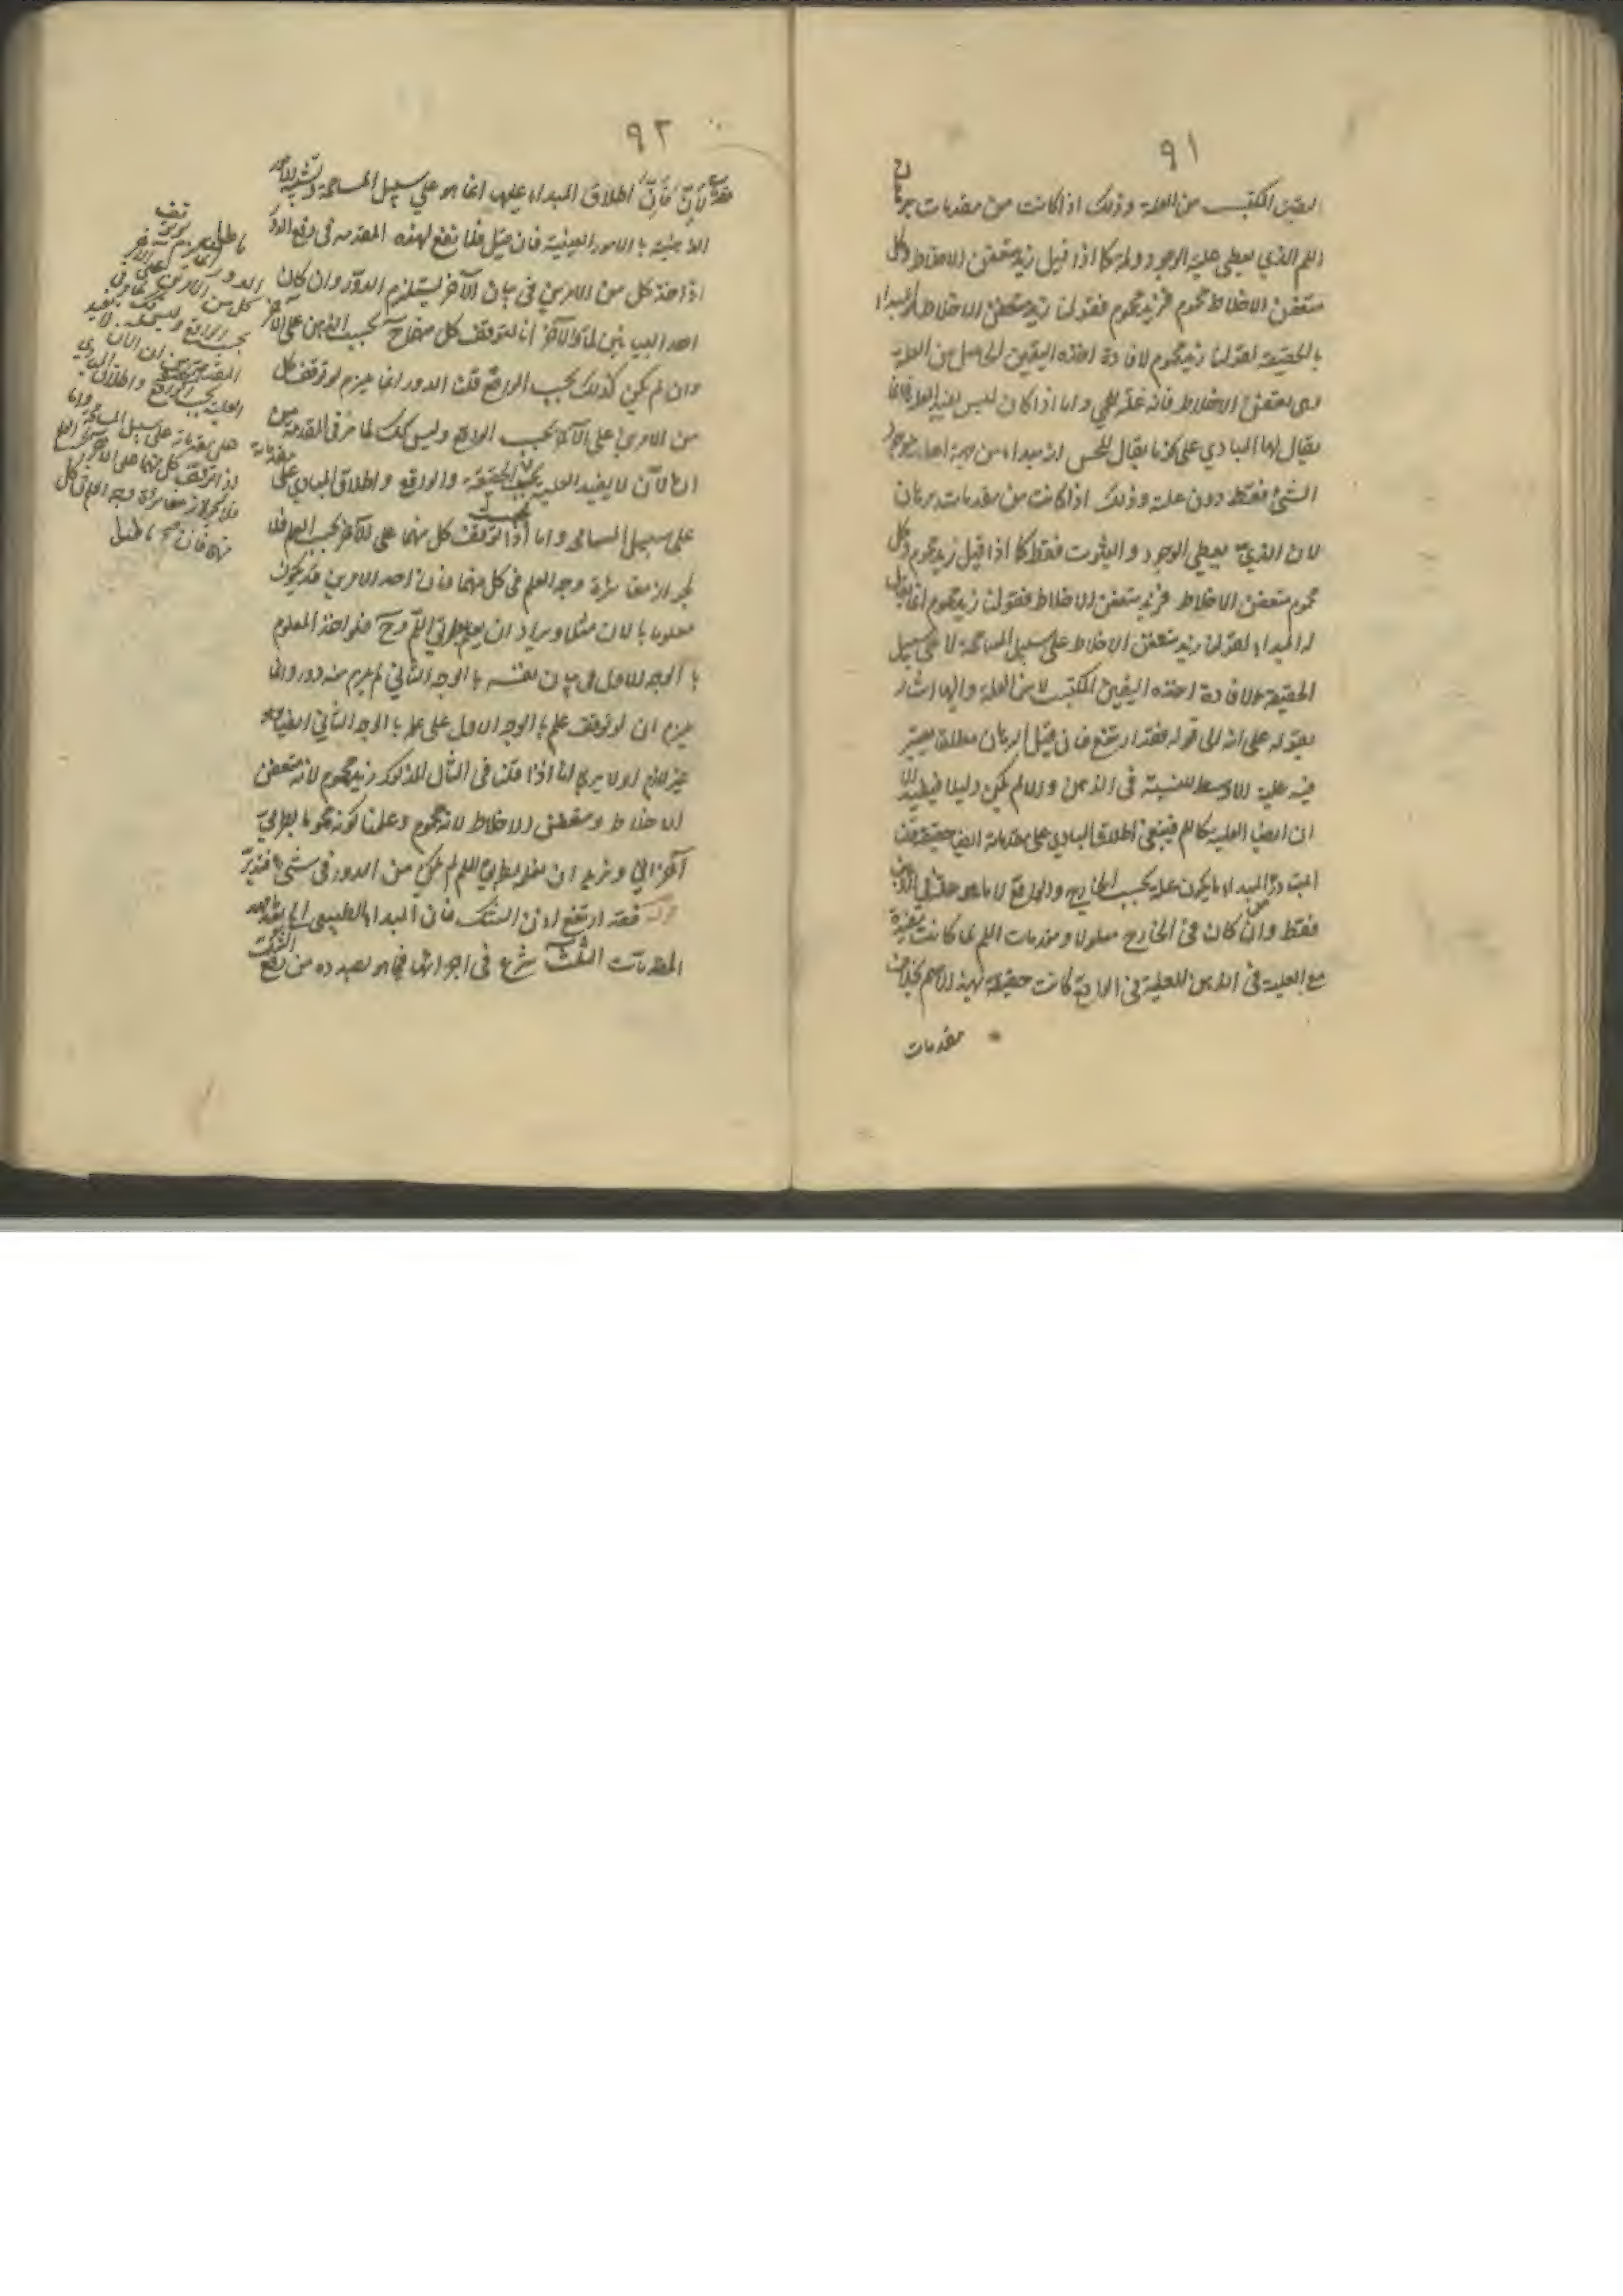 ٩١
اليقين المكتسب من العلة وذلك اذا كانت من مقدمات برهان
اللم الذي يعطي علية الوجود ولم كما اذا قيل زيد متعفن الاخلاط وكل
متعفن الاخلاط محموم فزيد محموم فقولنا زيد متعفن الاخلاط مبداء
بالحقيقة لقولنا زيد محموم لافادة هذه اليقين الحاصل من العلة
وهي تعفن الاخلاط فانه علة للحمى واما اذا كان ليس يفيد العلة فانما
يقال لها المبادي على نحو ما يقال للحس انه مبداء من جهة
الشئ فقط دون علته وذلك اذا كانت من مقدمات برهان
لان الذي يعطي الوجود والثبوت فقط كما اذا قيل زيد محموم وكل
محموم متعفن الاخلاط فزيد متعفن الاخلاط فقولنا زيد محموم انما يقال
له المبداء لقولنا زيد متعفن الاخلاط على سبيل المسامحة لا على سبيل
الحقيقة لافادة هذه اليقين المكتسب لا من العلة والى هذا اشار
بقوله على انه الى قوله فقد ارتفع فان قيل البرهان مطلقا يعتبر
فيه علية الاوسط للنسبة في الذهن والا لم يكن دليلا
ان ايضا العلية كاللم فينبغي اطلاق المبادي على مقدماته ايضا حقيقة قلت
المتبادر من المبداء ما يكون علة بحسب الخارج والواقع لا ما هو علة في الذهن
فقط وان كان في الخارج معلولا ومقدمات اللم لما كانت مفيدة
مع العلية في الذهن للعلية في الواقع كانت حقيقة بهذا الاسم بخلاف
مقدمات
٩٢
مقدمات لان فان اطلاق المبداء عليها انما هو على سبيل المسامحة وتشبيه الامور
الذهنية بالامور العينية فان قيل فلا نفع لهذه المقدمة في دفع الدور
اذ اخذ كل من الامرين في بيان الآخر يستلزم الدور وان كان
احد البيانين لما والآخر انا لتوقف كل منهما ح بحسب الذهن على الآخر
وان لم يكن كذلك بحسب الواقع قلت الدور انما يلزم لو توقف كل
من الامرين على الآخر بحسب الواقع وليس كك لما مر في المقدمتين
ان الان لا يفيد العلية بحسب الحقيقة والواقع واطلاق المبادي على مقدماته
على سبيل المسامحة واما اذا توقف كل منهما على الآخر بحسب العلم فلا
لجواز مغايرة وجه العلم في كل منهما فان احد الامرين قد يكون
معلوما بالان مثلا ويراد ان يعلم بطريق اللم وح فلو اخذ المعلوم
بالوجه الاول في بيان نفسه بالوجه الثاني لم يلزم منه دور وانما
يلزم ان لو توقف علمه بالوجه الاول على علمه بالوجه الثاني ايضا وهو
غير لازم اولا يرى انا اذا قلنا في المثال المذكور زيد محموم لانه متعفن
الاخلاط ومتعفن الاخلاط لانه محموم وعلمنا كونه محموما بطريق
آخر اني ونريد ان نعلم بطريق اللم لم يكن من الدور في شئ فتدبر
قوله فقد ارتفع اذن الشك فان المبداء الطبيعي الخ بعد ما مهد
المقدمات الثلث شرع في اجرائها فيما هو بصدده من رفع الشك
باطل
الدور انما يلزم لو توقف
كل من الامرين على الآخر
بحسب الواقع وليس كك لما مر في
المقدمتين ان الان لا يفيد
العلية بحسب الواقع واطلاق المبادي
على مقدماته على سبيل المسامحة واما
اذا توقف كل منهما على الآخر بحسب العلم
فلا لجواز مغايرة وجه العلم في كل
منهما فان باطل